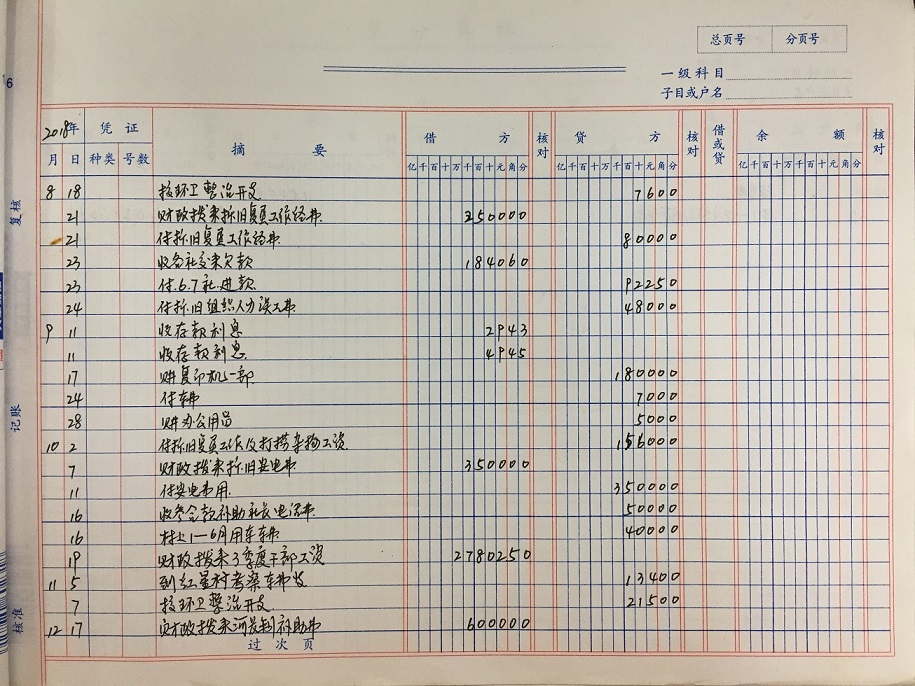 总页号 分页号
一级科目
子目或户名
6
2018年 凭证 摘要 借方 核对 贷方 核对 借或贷 余额 核对
月 日 种类 号数 亿千百十万千百十元角分 亿千百十万千百十元角分 亿千百十万千百十元角分
8 18 投环卫整治开支 7600
21 财政拨来拆旧复垦工作经费 250000
21 付拆旧复垦工作经费 80000
23 收各社交来欠款 184060
23 付6.7社进款 92250
24 付拆旧组织人力误工费 48000
9 11 收存款利息 2943
11 收存款利息 4945
17 购复印机一部 180000
24 付车费 7000
28 购办公用品 5000
10 2 付拆旧复垦工作及打捞杂物工资 156000
7 财政拨来拆旧安电费 350000
11 付安电费用 350000
16 收参会款补助社长电话费 50000
16 村上1—6月用车车费 40000
19 财政拨来3季度干部工资 2780250
11 5 到红星村考察车费支 13400
7 投环卫整治开支 21500
12 17 财政拨来河长制补助费 600000
过次页
复核
记账
核准